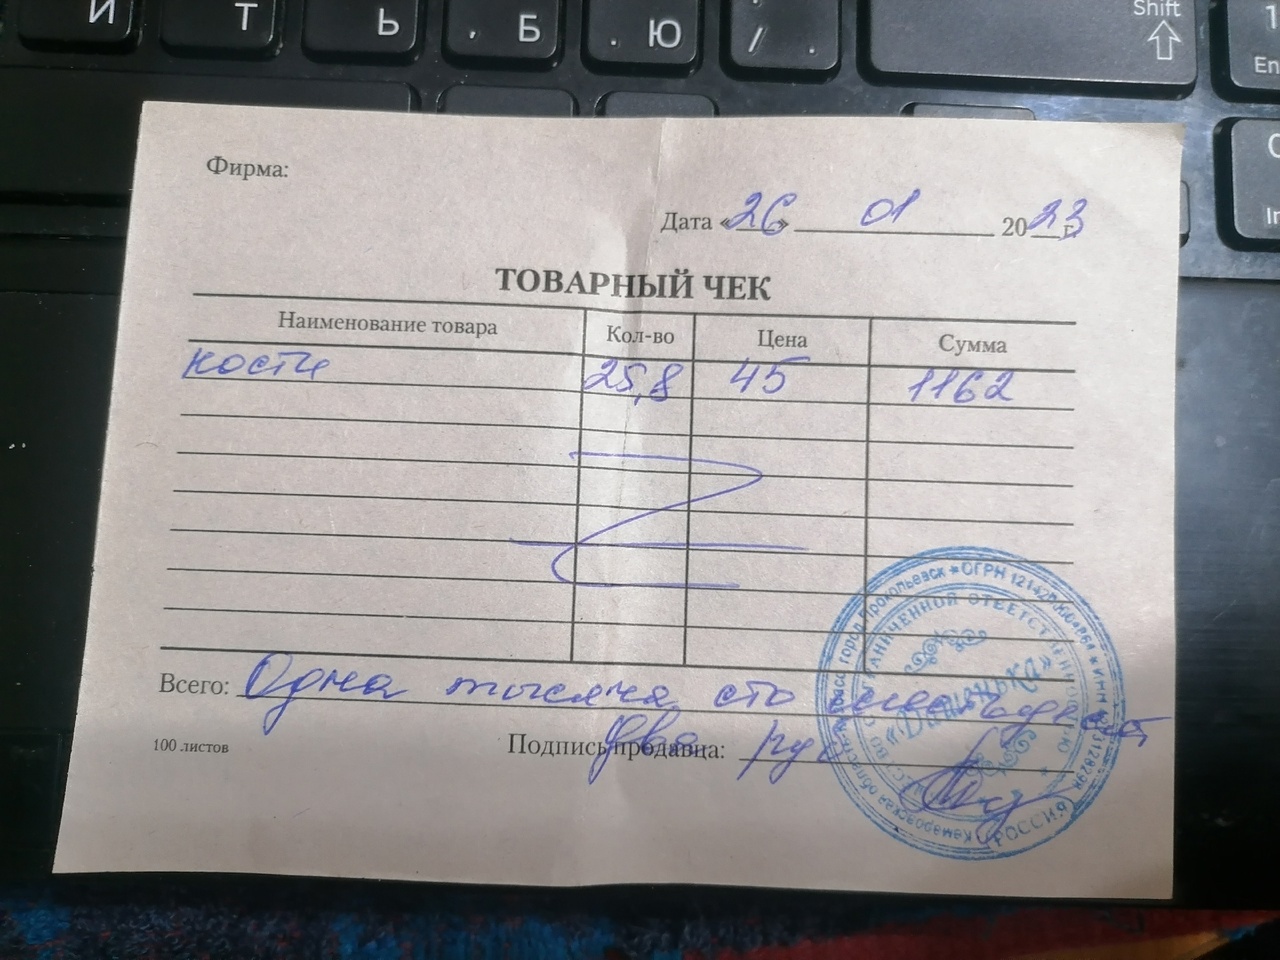 И Т Ь , Б . Ю / . Shift
Фирма:
Дата «26» 01 2023 г.
ТОВАРНЫЙ ЧЕК
Наименование товара Кол-во Цена Сумма
кости 25,8 45 1162
Всего: Одна тысяча сто шестьдесят
два руб
100 листов Подпись продавца:
город Прокопьевск * ОГРН
ОТВЕТСТВЕННОСТЬЮ
Кемеровская область
РОССИЯ